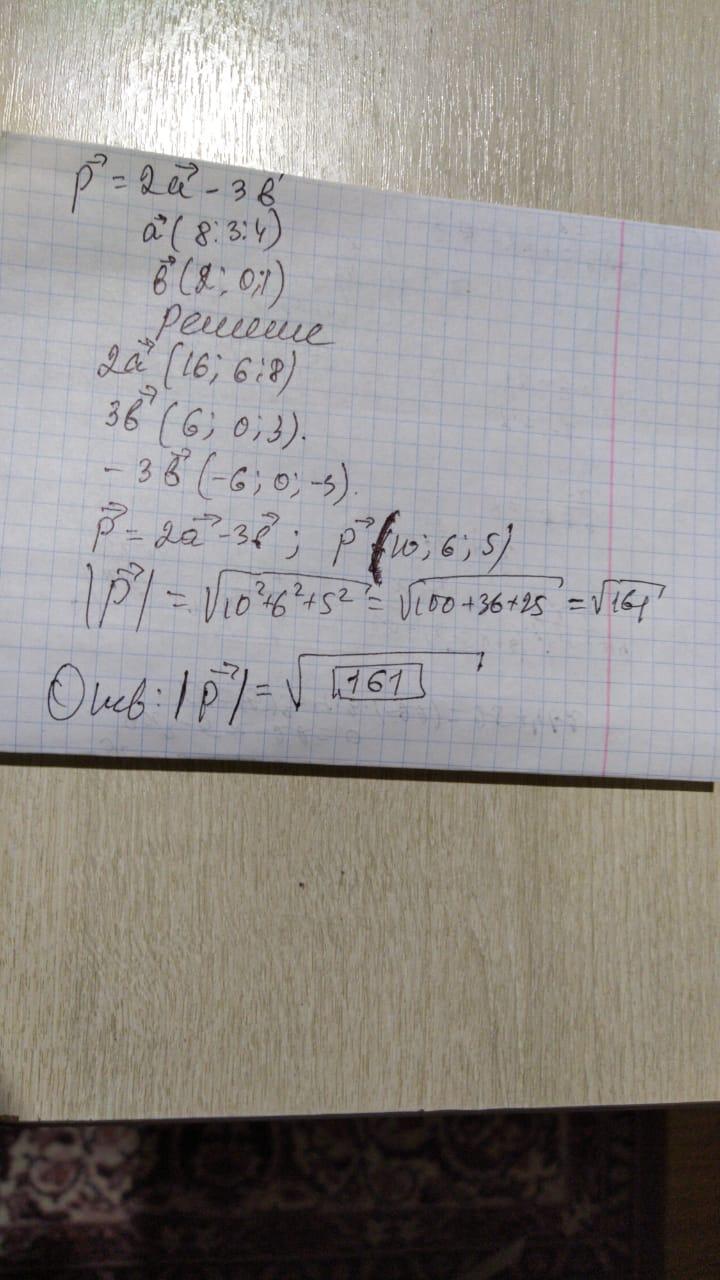 p⃗ = 2a⃗ - 3b⃗
a⃗ (8:3:4)
b⃗ (2; 0;1)
Решение
2a⃗ (16; 6;8)
3b⃗ (6; 0;3).
- 3b⃗ (-6; 0; -3).
p⃗ = 2a⃗ - 3b⃗ ; p⃗ (10; 6; 5)
|p⃗| = √10²+6²+5² = √100+36+25 = √161
Отв: |p⃗| = √161